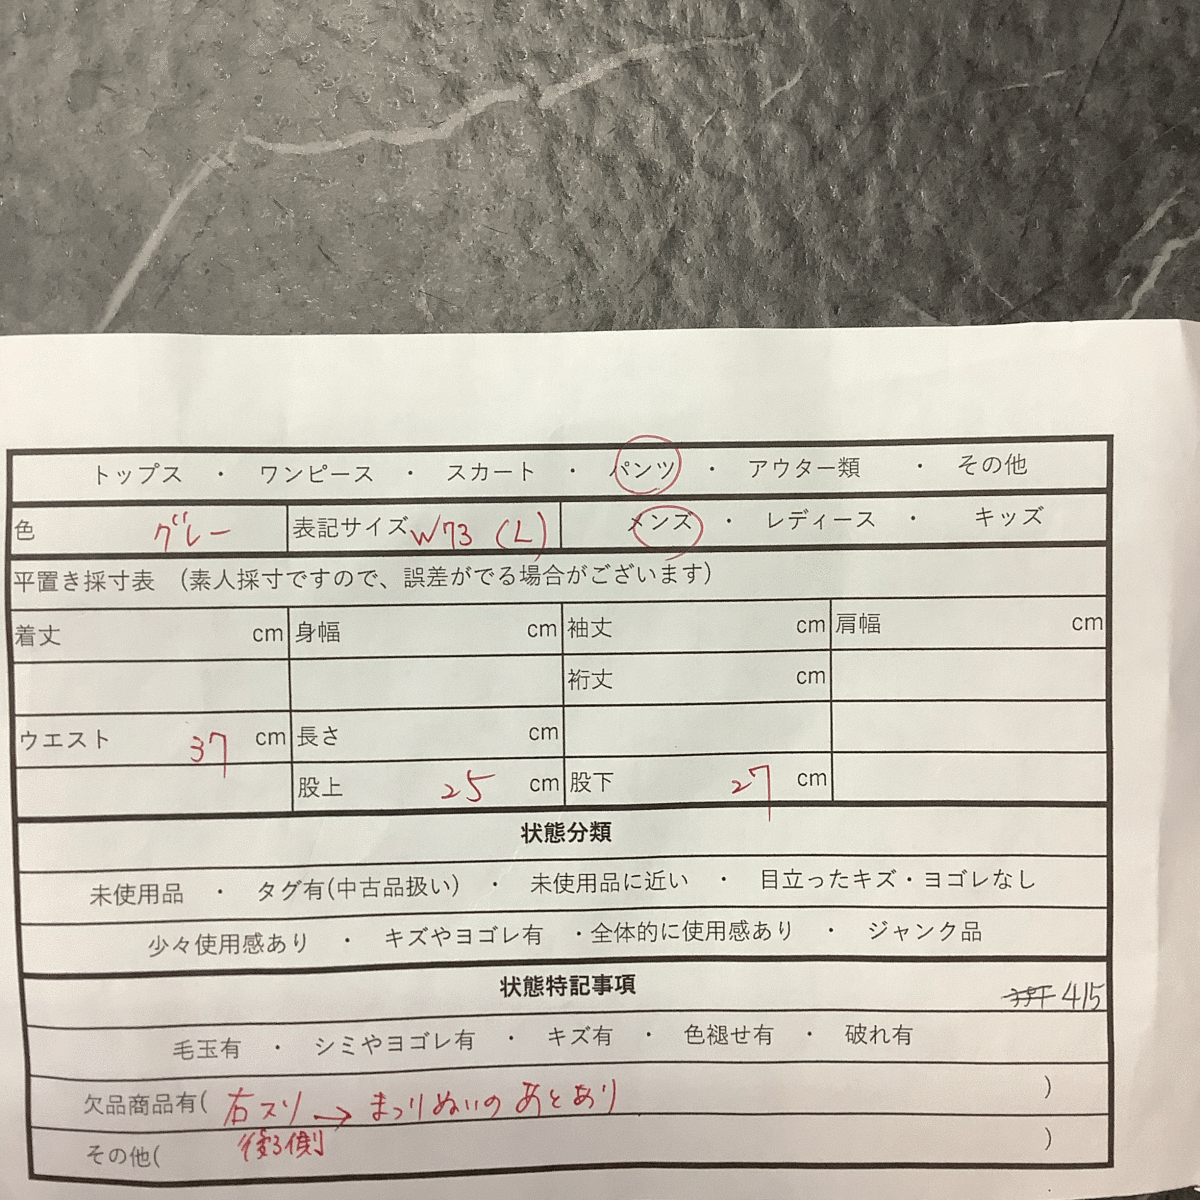 トップス ・ ワンピース ・ スカート ・ パンツ ・ アウター類 ・ その他
色 グレー 表記サイズ W73 (L) メンズ ・ レディース ・ キッズ
平置き採寸表 (素人採寸ですので、誤差がでる場合がございます)
着丈 cm 身幅 cm 袖丈 cm 肩幅 cm
裄丈 cm
ウエスト 37 cm 長さ cm
股上 25 cm 股下 27 cm
状態分類
未使用品 ・ タグ有(中古品扱い) ・ 未使用品に近い ・ 目立ったキズ・ヨゴレなし
少々使用感あり ・ キズやヨゴレ有 ・全体的に使用感あり ・ ジャンク品
状態特記事項 415
毛玉有 ・ シミやヨゴレ有 ・ キズ有 ・ 色褪せ有 ・ 破れ有
欠品商品有( 右スソ → まつりぬいのあとあり )
その他( 後ろ側 )